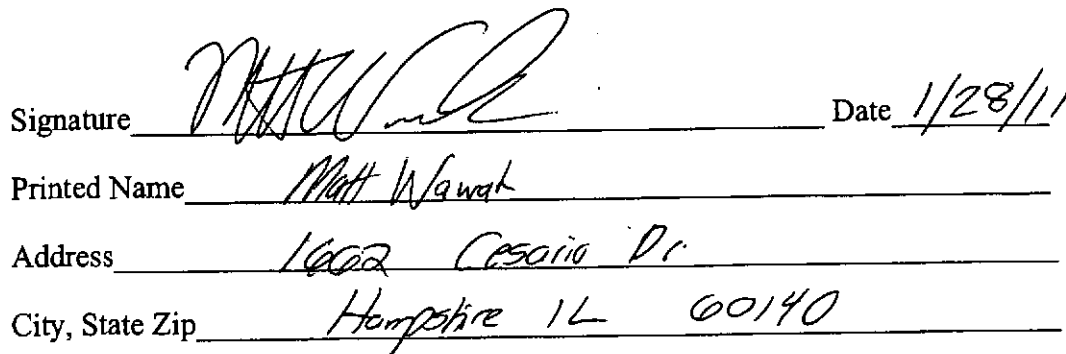 Signature Date 1/28/11
Printed Name Matt Wawak
Address Cesario Dr.
City, State Zip Hampshire IL 60140